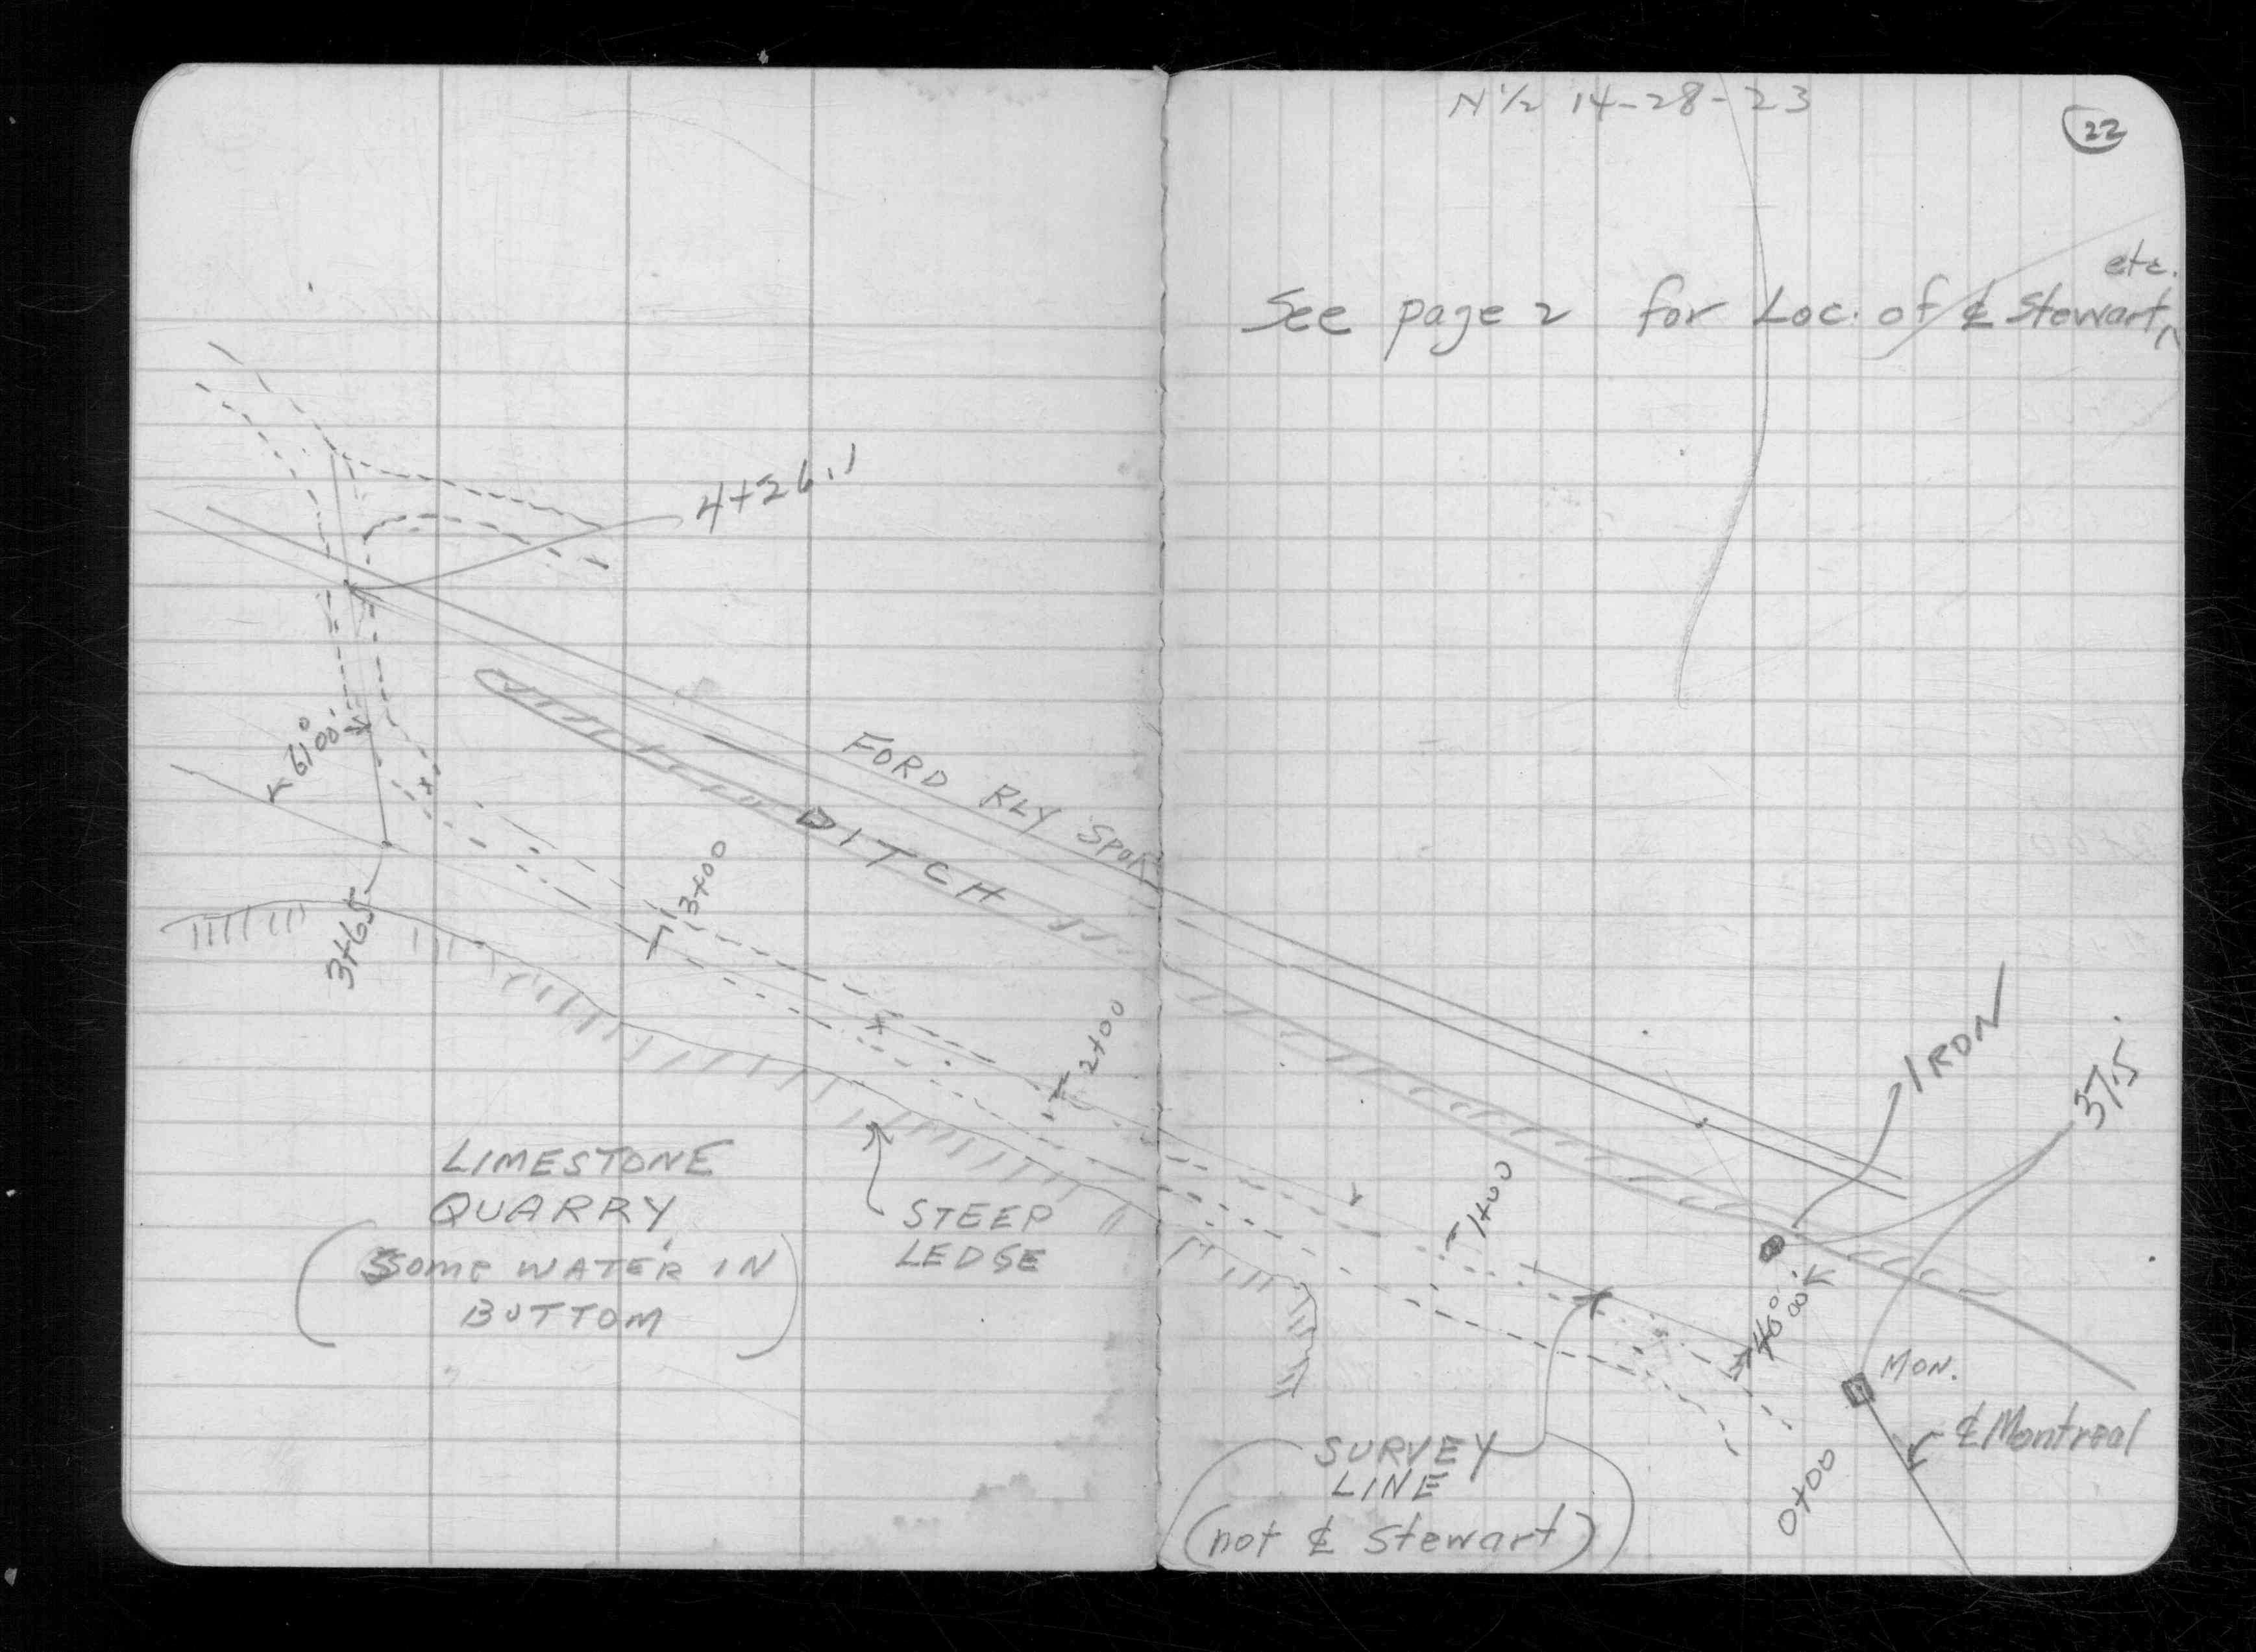 N ½ 14-28-23
22
etc.
See page 2 for Loc. of ℄ Stewart, ^
4+26.1
61°00'
FORD RLY SPUR
DITCH
3+00
3+65
2+00
IRON
37.5'
LIMESTONE
QUARRY,
(SOME WATER IN
BOTTOM)
STEEP
LEDGE
1+00
46°00'
MON.
℄ Montreal
0+00
SURVEY
LINE
(not ℄ Stewart)